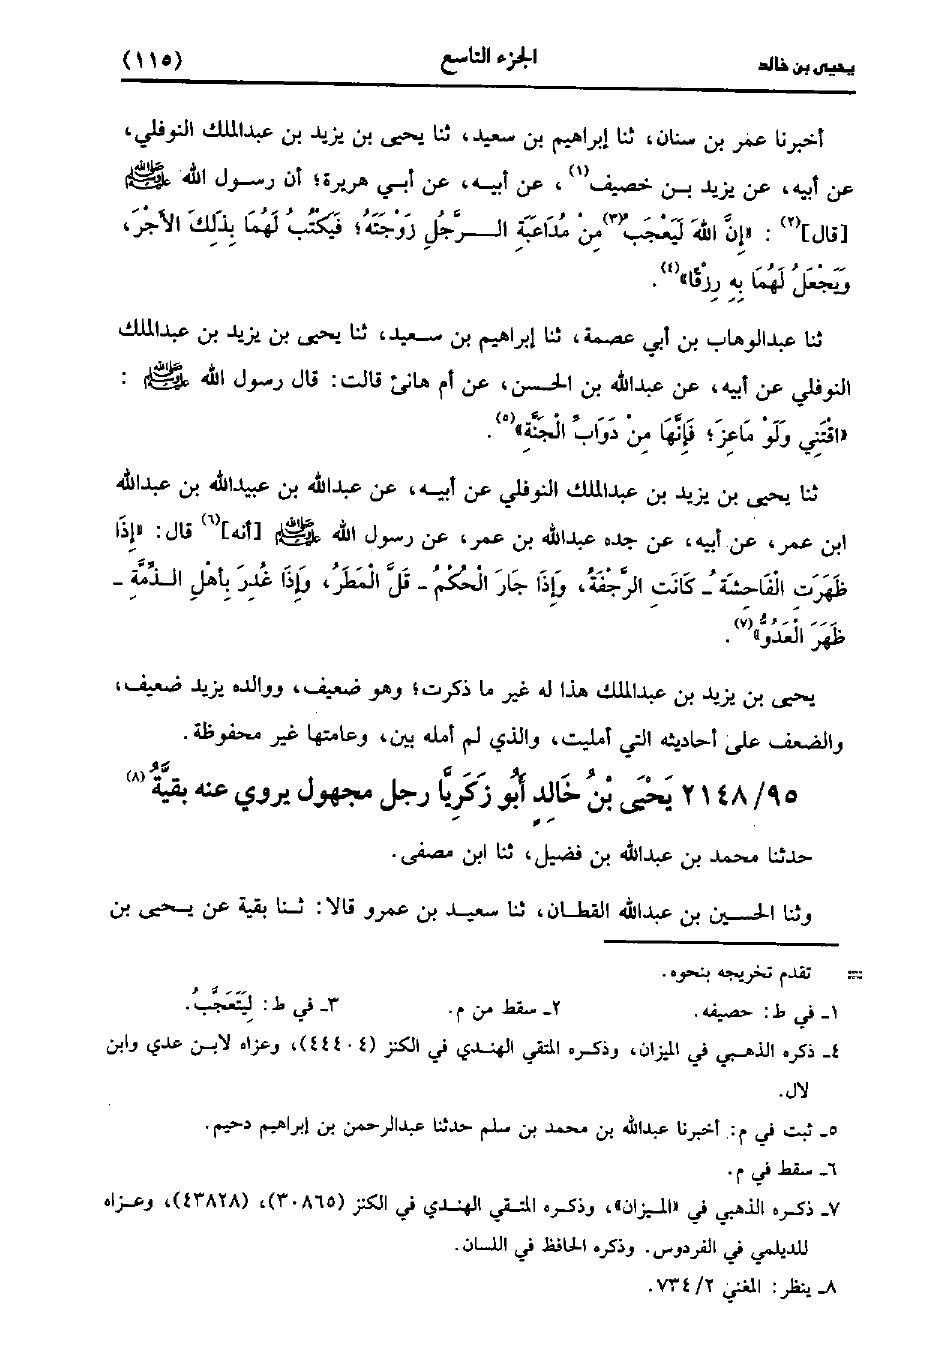 يحيى بن خالد الجزء التاسع (١١٥)
أخبرنا عمر بن سنان، ثنا إبراهيم بن سعيد، ثنا يحيى بن يزيد بن عبدالملك النوفلي،
عن أبيه، عن يزيد بـن خصيف(١)، عن أبيـه، عن أبـي هريرة؛ أن رسـول الله ﷺ
[قال](٢) : «إِنَّ اللهَ لَيَعْجَبُ(٣) مِنْ مُدَاعَبَةِ الـــرَّجُلِ زَوْجَتَهُ؛ فَيَكْتُبُ لَهُمَا بِذَلِكَ الأَجْرَ،
وَيَجْعَلُ لَهُمَا بِهِ رِزْقًا»(٤).
ثنا عبدالوهاب بن أبي عصمة، ثنا إبراهيم بن سـعيد، ثنا يحيى بن يزيد بن عبدالملك
النوفلي عن أبيه، عن عبدالله بن الحسن، عن أم هانئ قالت: قال رسول الله ﷺ :
«اقْتَنِي وَلَوْ مَاعِزَ؛ فَإِنَّهَا مِنْ دَوَابِّ الْجَنَّةِ»(٥).
ثنا يحيى بن يزيد بن عبدالملك النوفلي عن أبيـه، عن عبدالله بن عبيدالله بن عبدالله
ابن عمر، عن أبيه، عن جده عبدالله بن عمر، عن رسول الله ﷺ [أنه](٦) قال: «إِذَا
ظَهَرَتِ الْفَاحِشَةُ ـ كَانَتِ الرَّجْفَةُ، وَإِذَا جَارَ الْحُكْمُ ـ قَلَّ الْمَطَرُ، وَإِذَا غُدِرَ بِأَهْلِ الـذِّمَّةِ ـ
ظَهَرَ الْعَدُوُّ»(٧).
يحيى بن يزيد بن عبدالملك هذا له غير ما ذكرت؛ وهو ضعيف، ووالده يزيد ضعيف،
والضعف على أحاديثه التي أمليت، والذي لم أمله بين، وعامتها غير محفوظة.
٢١٤٨/٩٥ يَحْيَى بْنُ خَالِدٍ أَبُو زَكَرِيَّا رجل مجهول يروي عنه بقيَّةُ(٨)
حدثنا محمد بن عبدالله بن فضيل، ثنا ابن مصفى.
وثنا الحســين بن عبدالله القطـان، ثنا سعيـد بن عمرو قالا: ثـنا بقية عن يـحيى بن
= تقدم تخريجه بنحوه.
١ـ في ط: حصيفه. ٢ـ سقط من م. ٣ـ في ط: لِيَتَعَجَّبُ.
٤ـ ذكره الذهبي في الميزان، وذكـره المتقي الهندي في الكنز (٤٤٤٠٤)، وعزاه لابـن عدي وابن
لال.
٥ـ ثبت في م: أخبرنا عبدالله بن محمد بن سلم حدثنا عبدالرحمن بن إبراهيم دحيم.
٦ـ سقط في م.
٧ـ ذكـره الذهبي في «الميزان»، وذكـره المتـقي الهنـدي في الكنز (٣٠٨٦٥)، (٤٣٨٢٨)، وعـزاه
للديلمي في الفردوس. وذكره الحافظ في اللسان.
٨ـ ينظر: المغني ٧٣٤/٢.